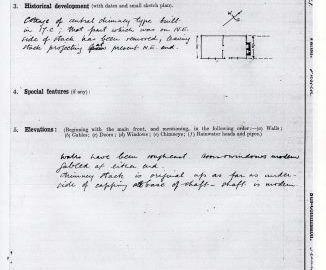 3. Historical development (with dates and small sketch plan).
Cottage of central chimney type built
in 17.C; that part which was on N.E.
side of stack has been removed, leaving
stack projecting from present N.E. end.
4. Special features (if any)
5. Elevations: (Beginning with the main front, and mentioning, in the following order:—(a) Walls;
(b) Gables; (c) Doors; (d) Windows; (e) Chimneys; (f) Rainwater heads and pipes.)
Walls have been roughcast doors & windows modern
gabled at either end.
Chimney stack is original up as far as under-
side of capping at base of shaft - shaft is modern